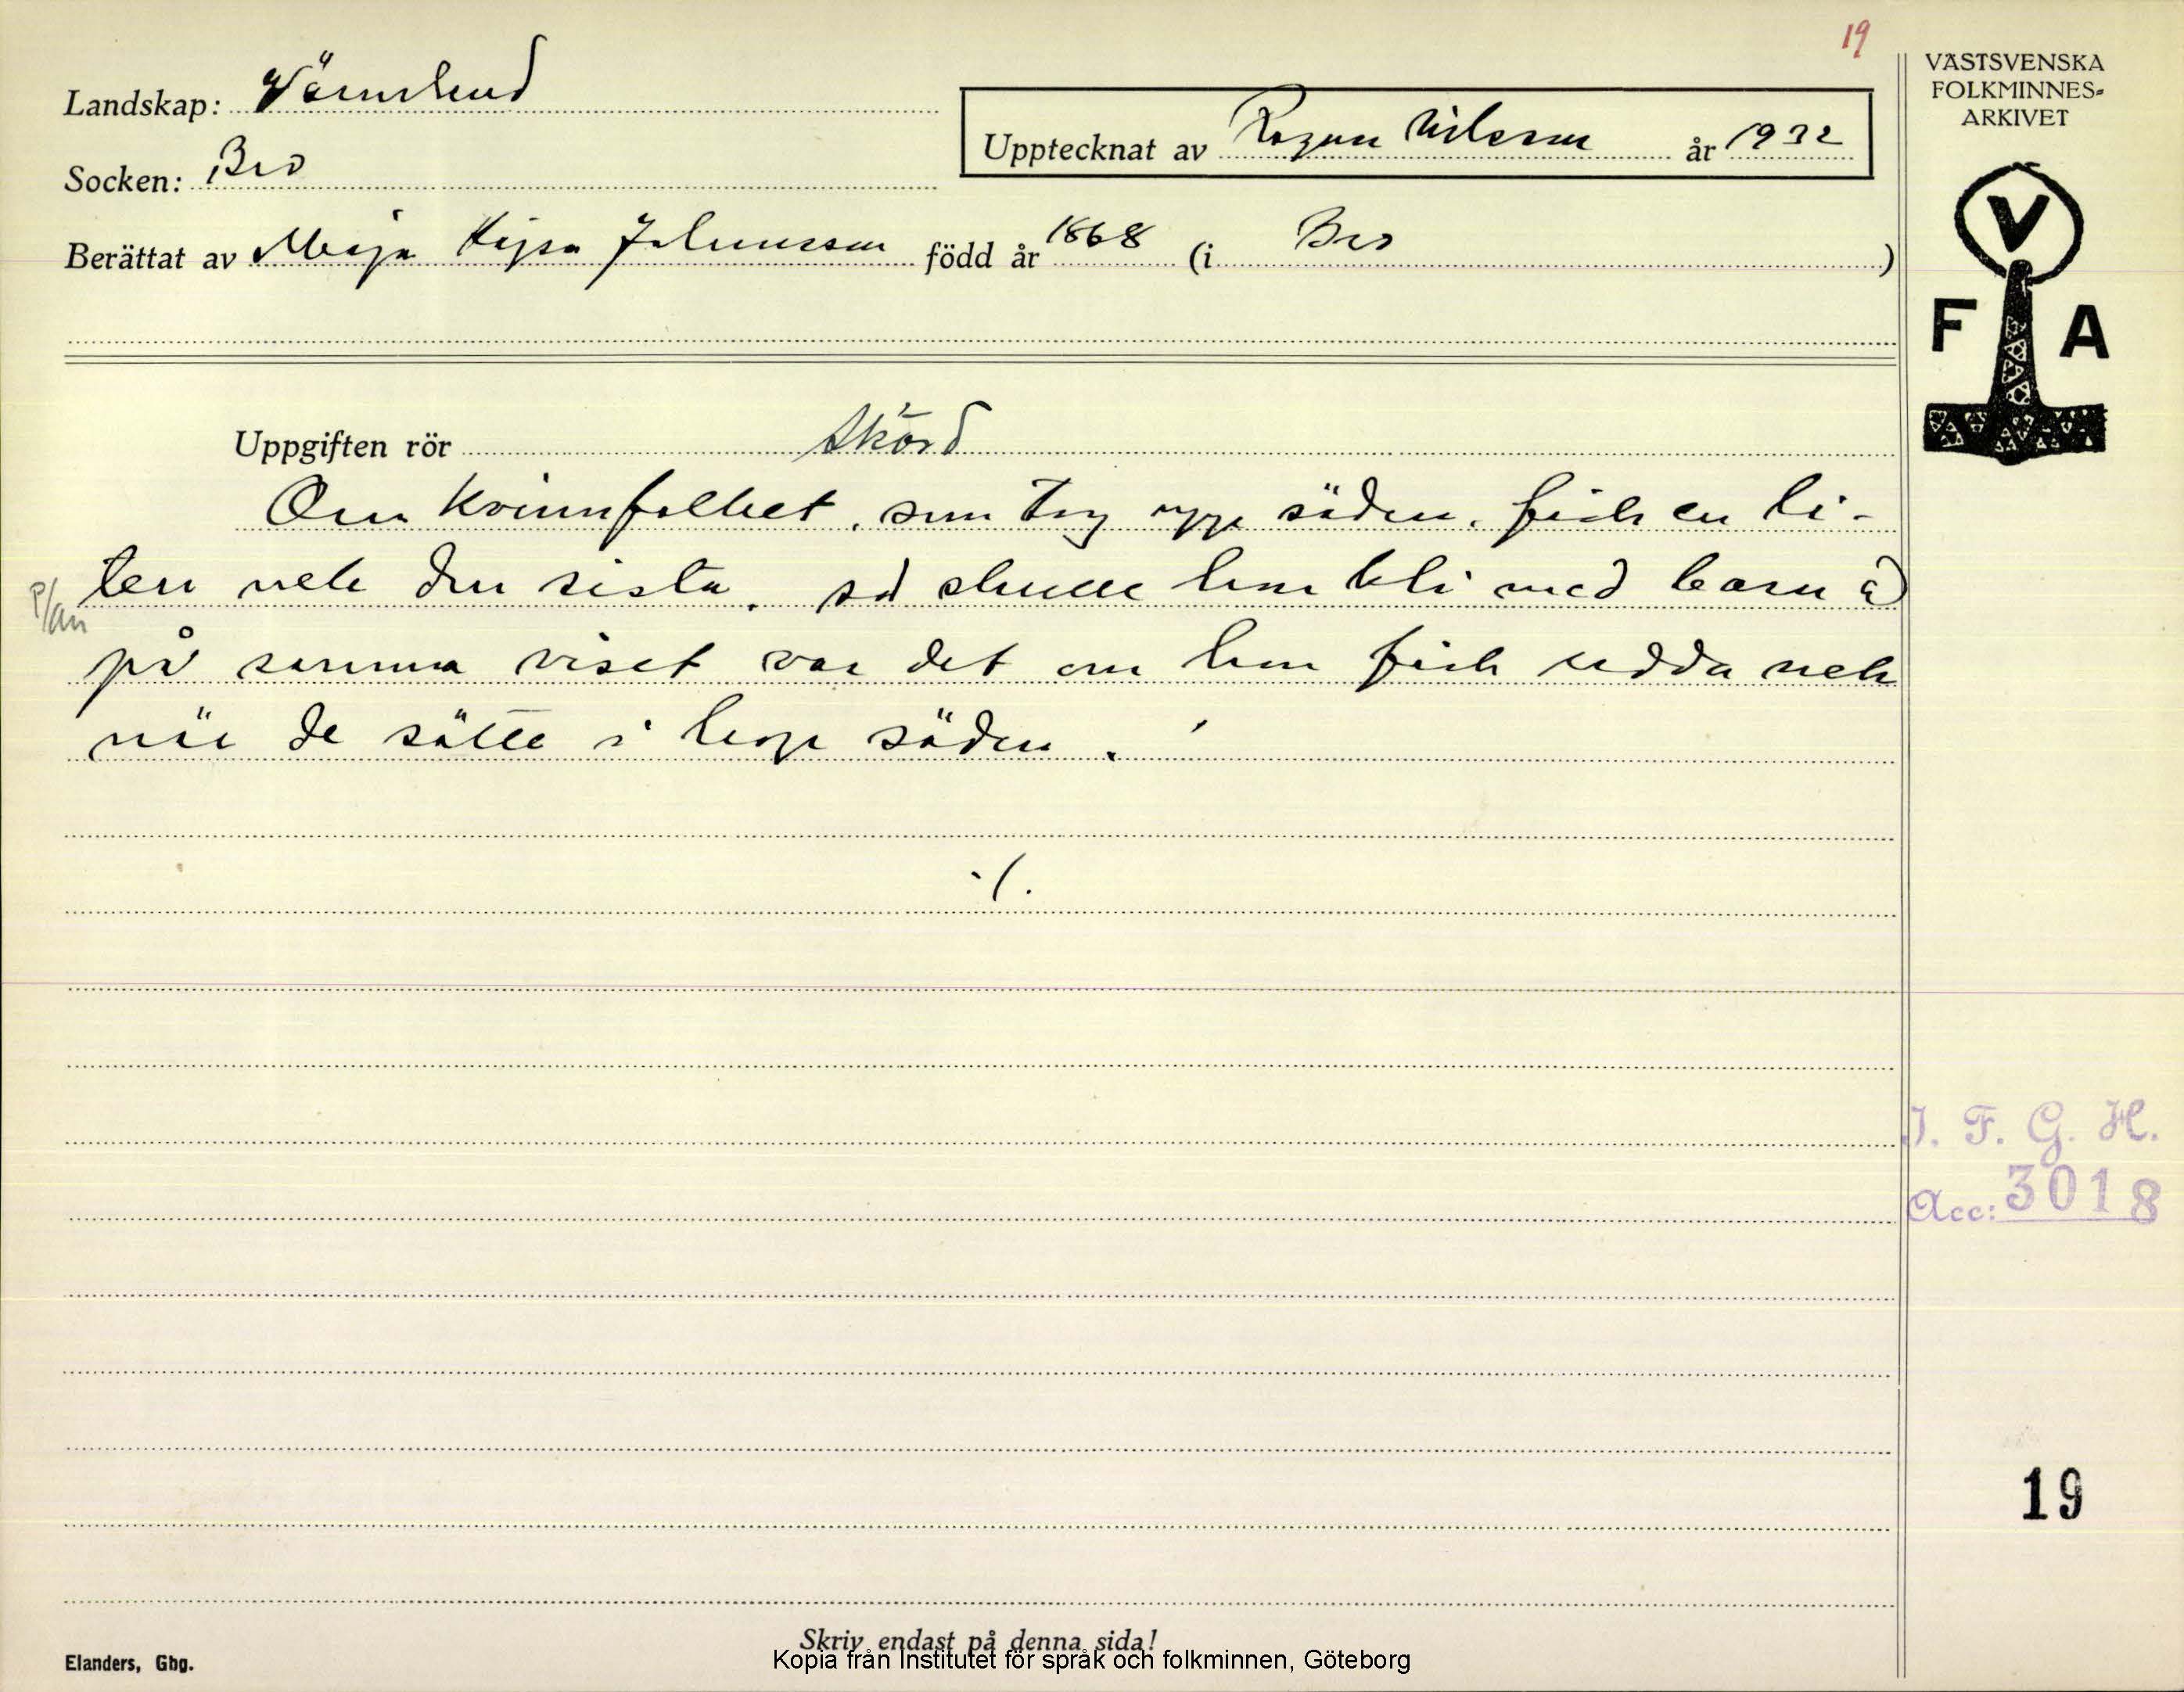 19
Landskap: Värmland
Socken: Bro
Upptecknat av Ragnar Nilsson år 1932
Berättat av Maja Kajsa Johansson född år 1868 (i Bro)
VÄSTSVENSKA
FOLKMINNES-
ARKIVET
V
F A
Uppgiften rör Skörd
Om kvinnfolket, som tog upp säden, fick en li-
ten nek den sista, så skulle hon bli med barn å
på samma viset var det om hon fick udda nek
när de sätte i hop säden.
./.
I. F. G. H.
Acc: 3018
19
Skriv endast på denna sida!
Elanders, Gbg.
Kopia från Institutet för språk och folkminnen, Göteborg